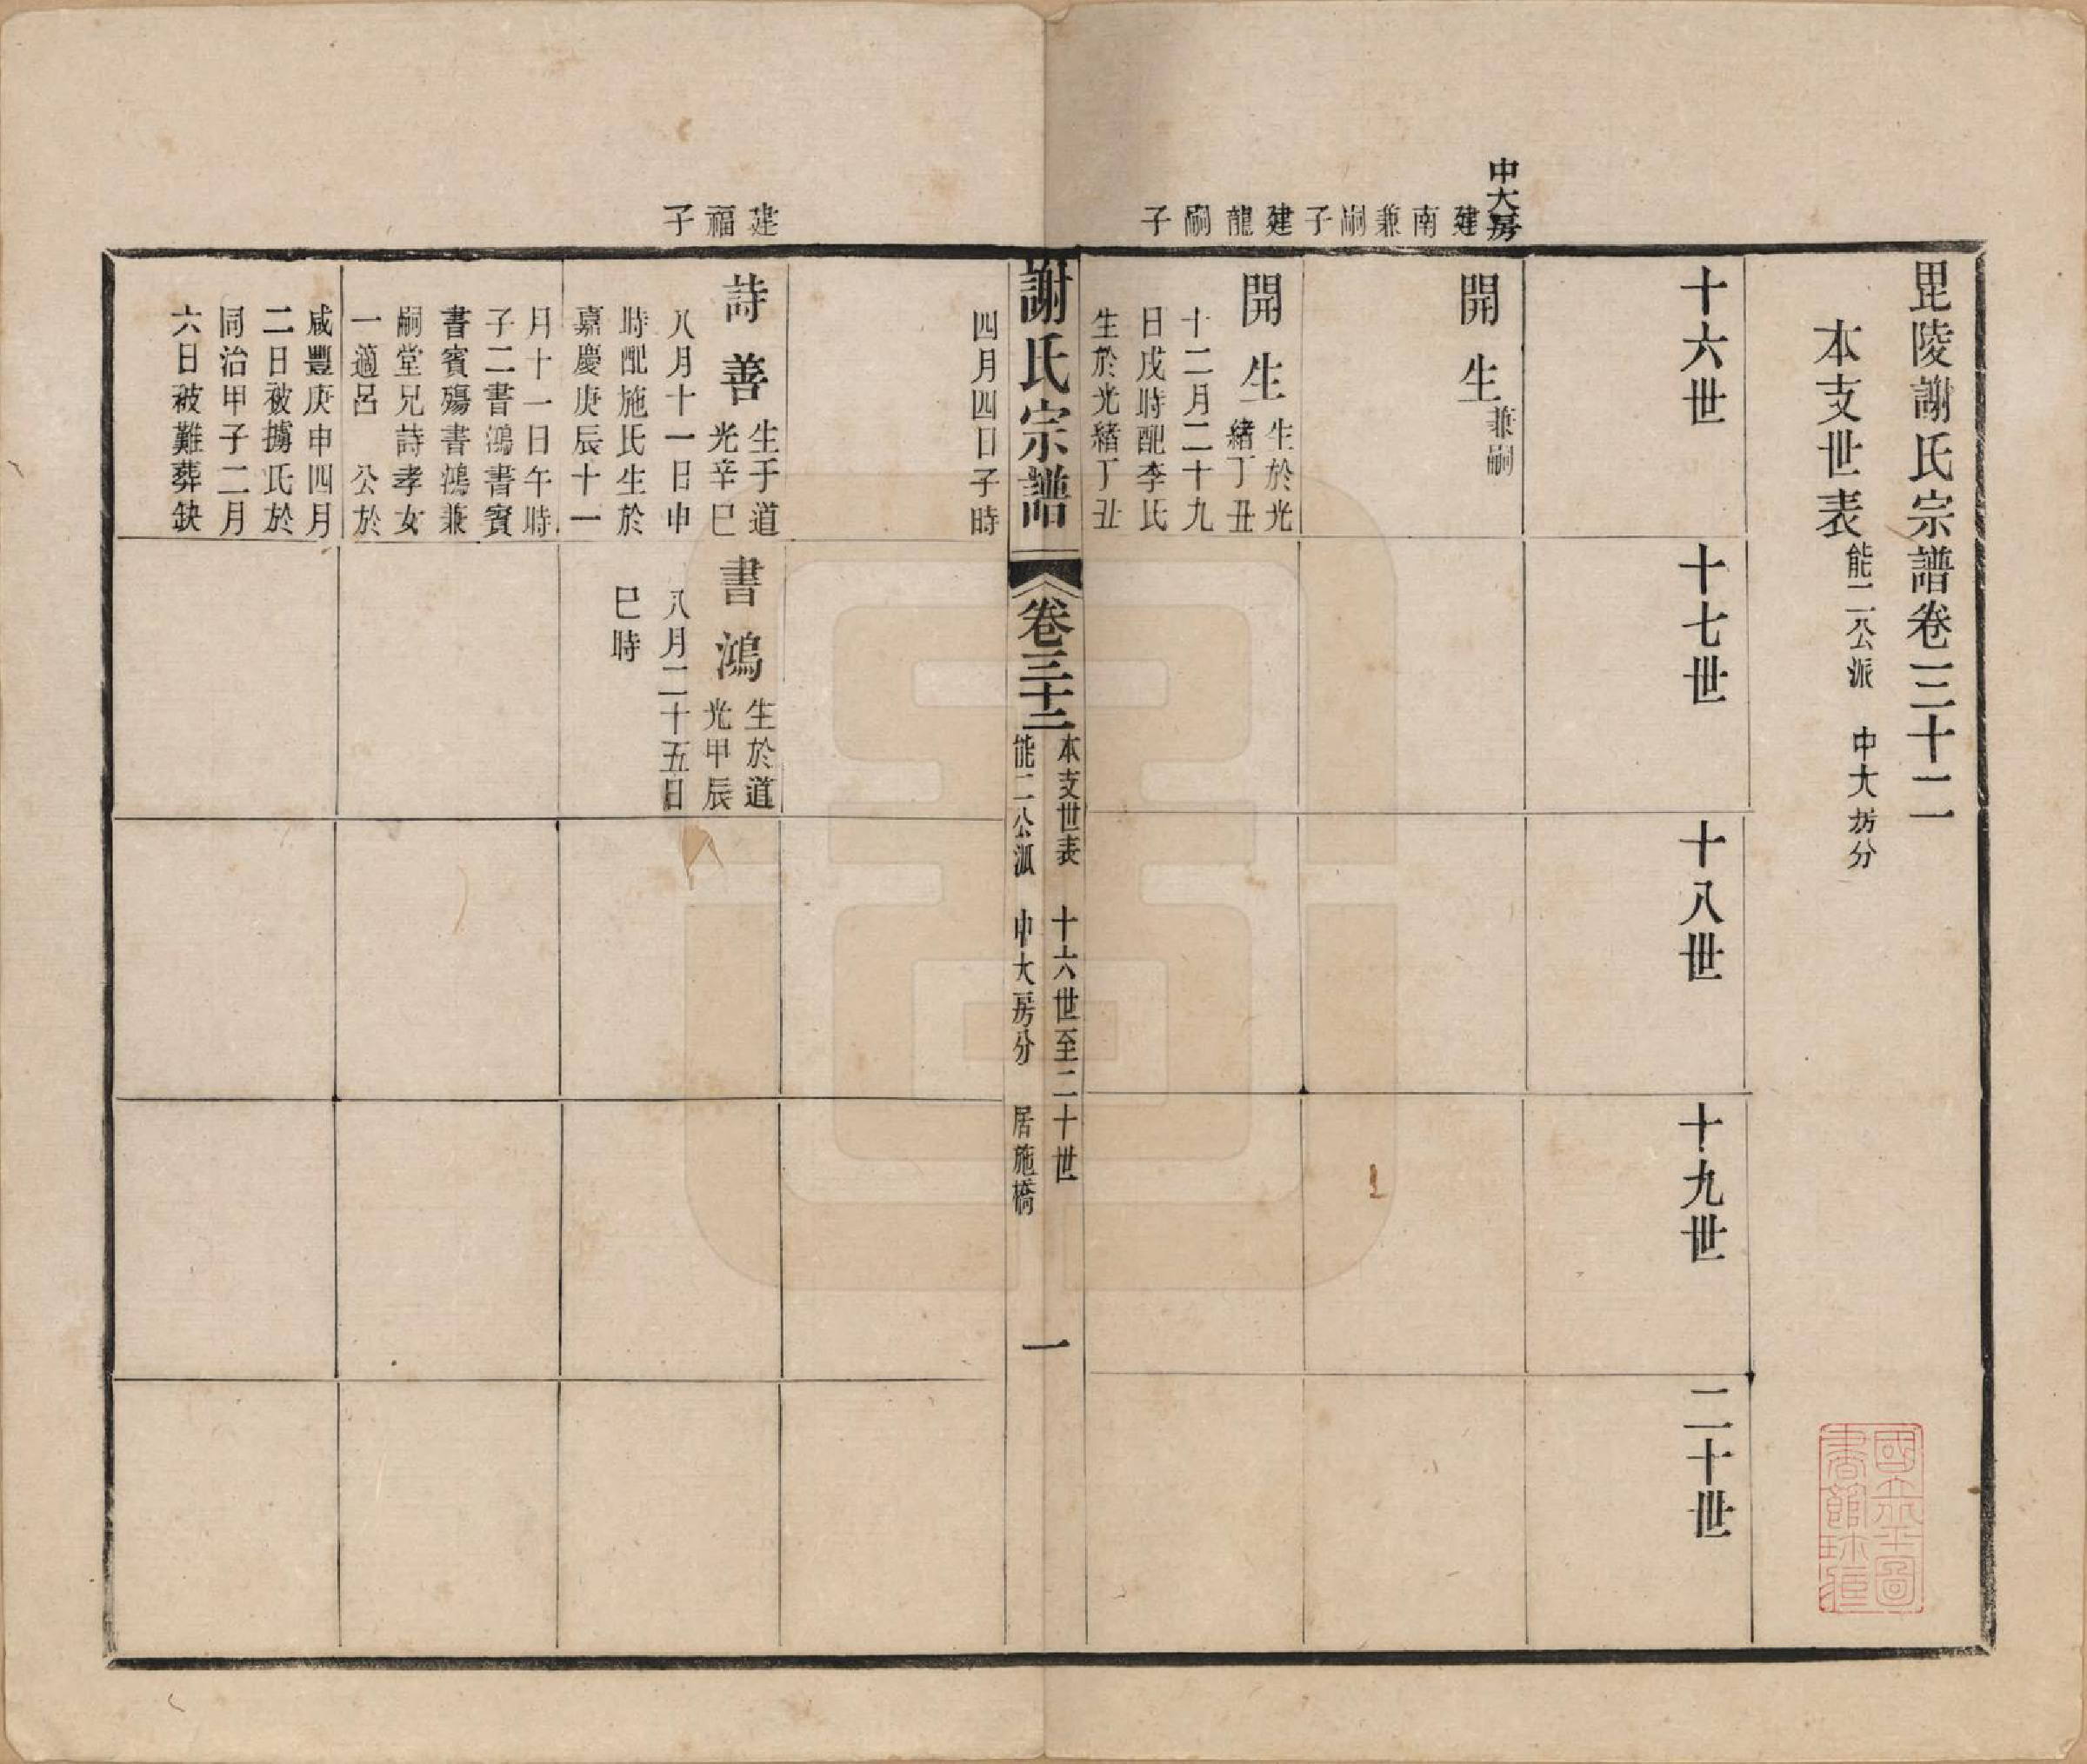 毘陵謝氏宗譜卷三十二
本支世表能二公派 中大房分
十六世
十七世
十八世
十九世
二十世
中大房
建南兼嗣子
開生兼嗣
建龍嗣子
開生生於光
緒丁丑
十二月二十九
日戌時配李氏
生於光緒丁丑
謝氏宗譜
卷三十二
本支世表 十六世至二十世
能二公派 中大房分 居施橋
一
四月四日子時
建福子
詩善生于道
光辛巳
八月十一日申
時配施氏生於
嘉慶庚辰十一
月十一日午時
子二書鴻書賓
書賓殤書鴻兼
嗣堂兄詩孝女
一適呂 公於
咸豐庚申四月
二日被擄氏於
同治甲子二月
六日被難葬缺
書鴻生於道
光甲辰
八月二十五日
巳時
國立北平圖
書館珍藏